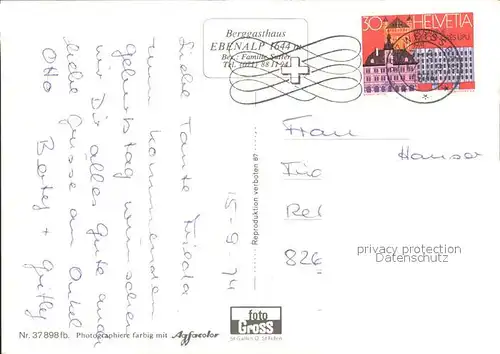 Berggasthaus
EBENALP 1644 m
Bes. Familie Sutter
Tel. (071) 88 11 94
30 HELVETIA
UPU
Liebe Tante Frieda
zum kommenden
Geburtstag wünschen
wir Dir alles Gute auch
liebe Grüsse an Onkel
Otto Betey + Gritly
15-9-74
Reproduktion verboten 67
Frau
Hauser
Re
826
privacy protection
watermark
foto
Gross
St. Gallen
Nr. 37898fb. Photographiere farbig mit Agfacolor